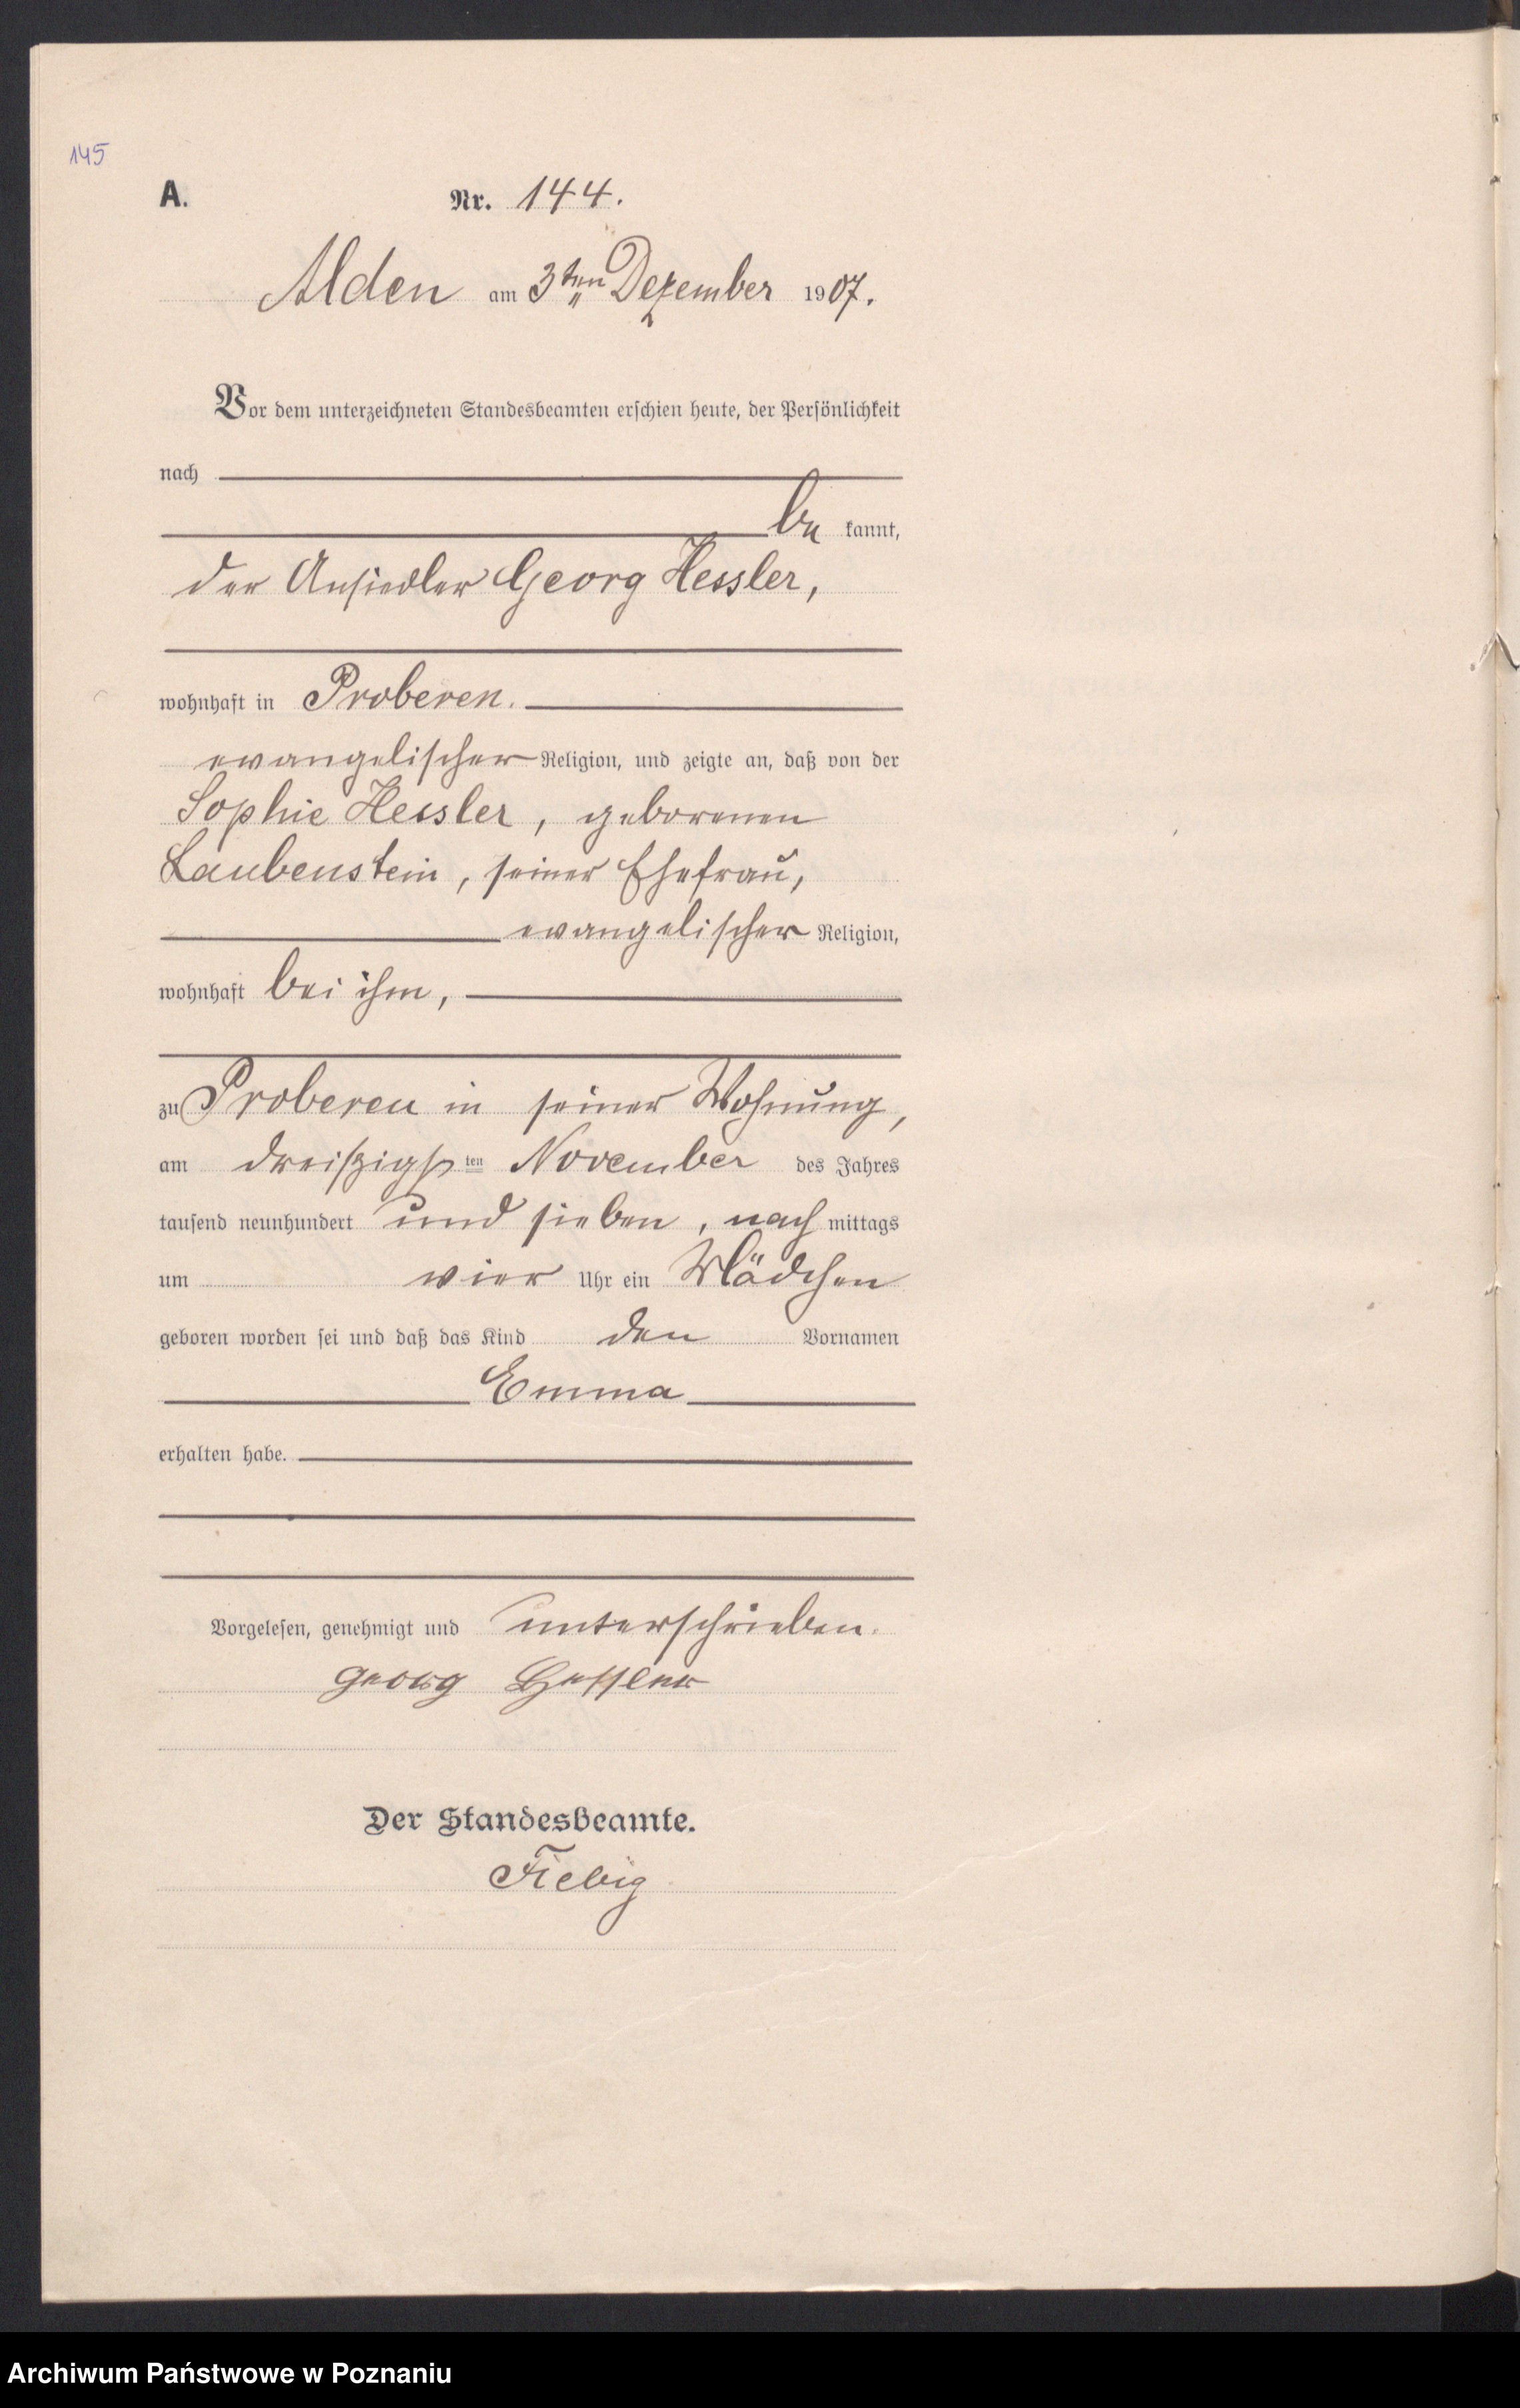 145
A. Nr. 144.
Alden am 3ten Dezember 1907.
Vor dem unterzeichneten Standesbeamten erschien heute, der Persönlichkeit
nach
be kannt,
der Ansiedler Georg Hessler,
wohnhaft in Proberen.
evangelischer Religion, und zeigte an, daß von der
Sophie Hessler, geborenen
Laubenstein, seiner Ehefrau,
evangelischer Religion,
wohnhaft bei ihm,
zu Proberen in seiner Wohnung,
am dreißigsten November des Jahres
tausend neunhundert und sieben, nach mittags
um vier Uhr ein Mädchen
geboren worden sei und daß das Kind den Vornamen
Emma
erhalten habe.
Vorgelesen, genehmigt und unterschrieben.
Georg Hessler
Der Standesbeamte.
Fiebig
Archiwum Państwowe w Poznaniu